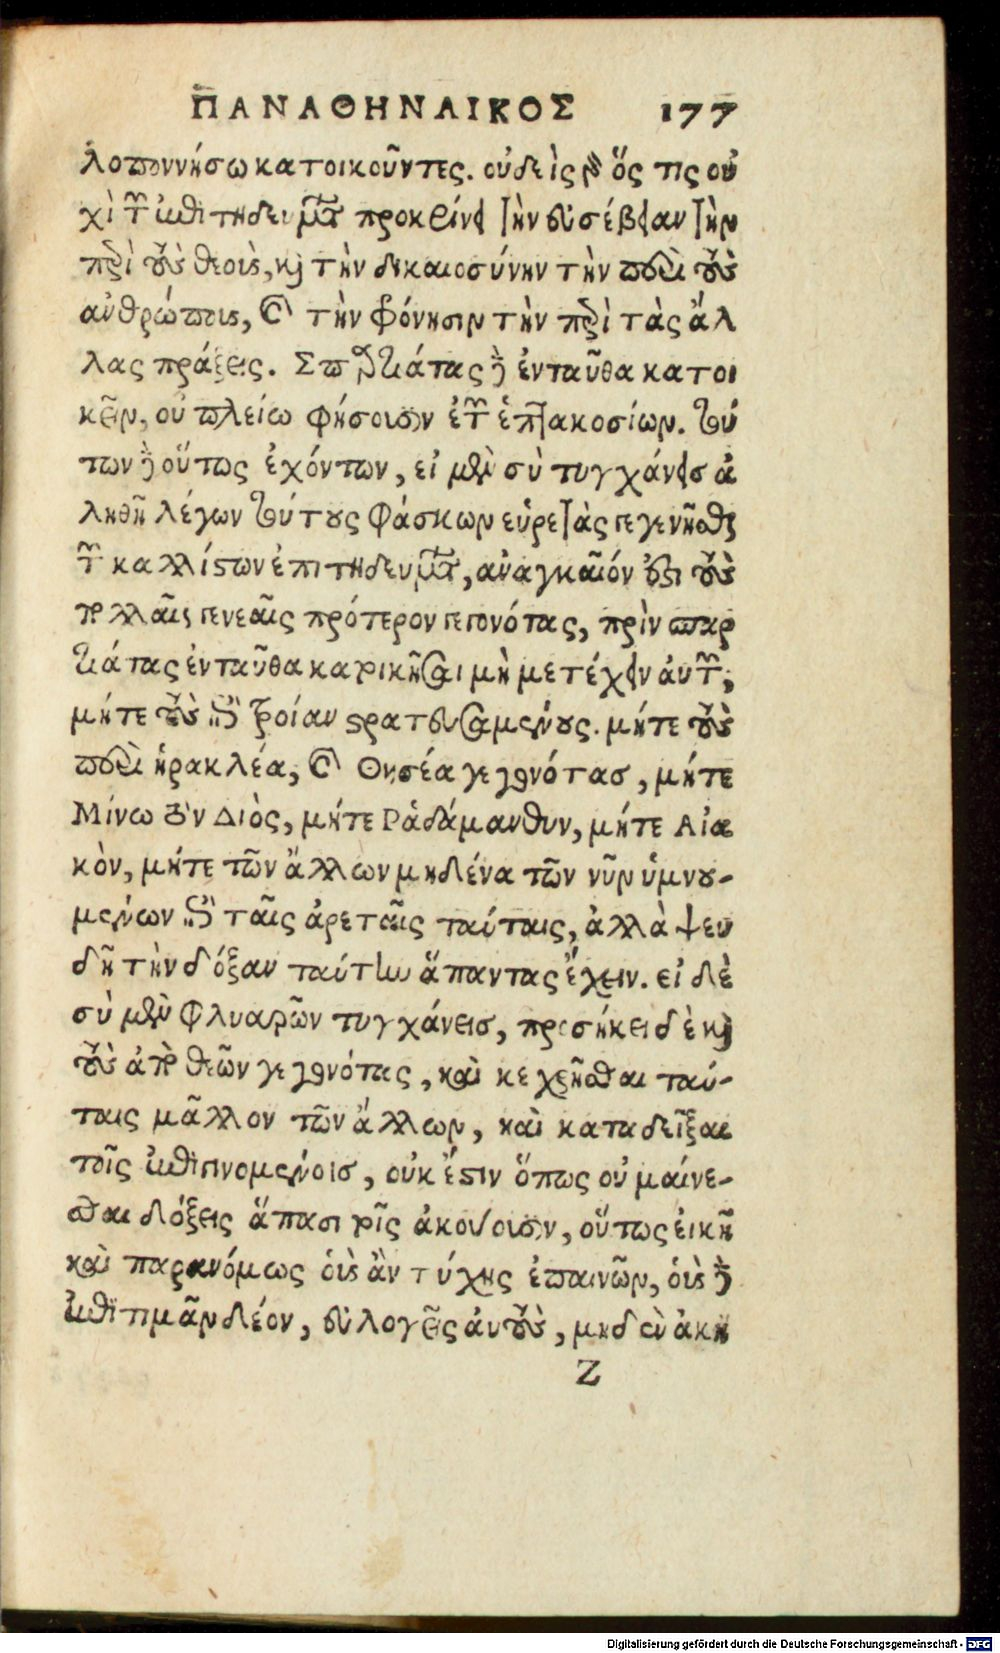 ΠΑΝΑΘΗΝΑΙΚΟΣ 177
λοποννήσω κατοικοῦντες. οὐδεὶς γὰρ ὅς τις οὐ
χὶ τῶν ἐπιτηδευμάτων προκρίνει τὴν εὐσέβειαν τὴν
περὶ τοὺς θεοὺς, καὶ τὴν δικαιοσύνην τὴν περὶ τοὺς
ἀνθρώπους, καὶ τὴν φρόνησιν τὴν περὶ τὰς ἄλ
λας πράξεις. Σπαρτιάτας δὲ ἐνταῦθα κατοι
κεῖν, οὐ πλείω φήσουσιν ἐτῶν ἑπτακοσίων. τού
των δὲ οὕτως ἐχόντων, εἰ μὲν σὺ τυγχάνεισ ἀ
ληθῆ λέγων τούτους φάσκων εὑρετὰς γεγενῆσθαι
τῶν καλλίστων ἐπιτηδευμάτων, ἀναγκαῖόν ἐστι τοὺς
πολλαῖς γενεαῖς πρότερον γεγονότας, πρὶν σπαρ
τιάτας ἐνταῦθα κατικῆσαι μὴ μετέχειν αὐτῶν,
μήτε τοὺς ἐπὶ τροίαν στρατευσαμένους. μήτε τοὺς
περὶ ἡρακλέα, καὶ Θησέα γεγονότασ, μήτε
Μίνω τὸν Διὸς, μήτε Ῥαδάμανθυν, μήτε Αἰα
κὸν, μήτε τῶν ἄλλων μηδένα τῶν νῦν ὑμνου-
μένων ἐπὶ ταῖς ἀρεταῖς ταύταις, ἀλλὰ ψευ
δῆ τὴν δόξαν ταύτην ἅπαντας ἔχειν. εἰ δὲ
σὺ μὲν φλυαρῶν τυγχάνεισ, προσήκει δὲ καὶ
τοὺς ἀπὸ θεῶν γεγονότας, καὶ κεχρῆσθαι ταύ-
ταις μᾶλλον τῶν ἄλλων, καὶ καταδεῖξαι
τοῖς ἐπιγινομένοισ, οὐκ ἔστιν ὅπως οὐ μαίνε-
σθαι δόξεις ἅπασι τοῖς ἀκούουσιν, οὕτως εἰκῆ
καὶ παρανόμως οὓς ἂν τύχης ἐπαινῶν, οὓς δὲ
ἐπιτιμᾶν δέον, εὐλογεῖς αὐτοὺς, μηδὲν ἀκη
Z
Digitalisierung gefördert durch die Deutsche Forschungsgemeinschaft - DFG